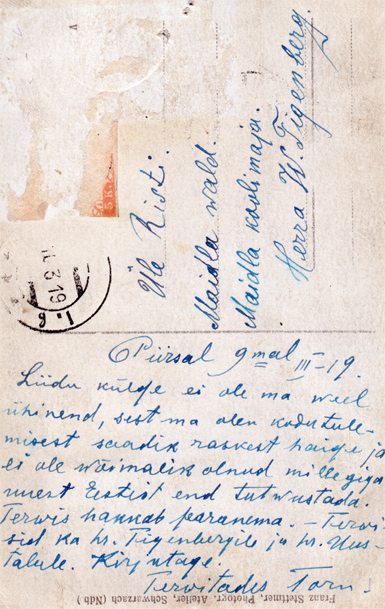 Üle Risti.
Maidla wald.
Maidla koolimaja.
Herra W. Tigenberg.
5 K.
3 19
Piirsal 9mal III–19.
Liidu külge ei ole ma weel
ühinend, sest ma olen kodutule-
misest saadik raskest haige ja
ei ole wõimalik olnud millegiga
uuest Eestist end tutwustada.
Terwis hakkab paranema. – Terwi-
sid ka hr. Tigenbergile ja hr. Uus-
talule. Kirjutage.
Terwitades Torn
Franz Stettmer, Photogr. Atelier, Schwarzach (Ndb)